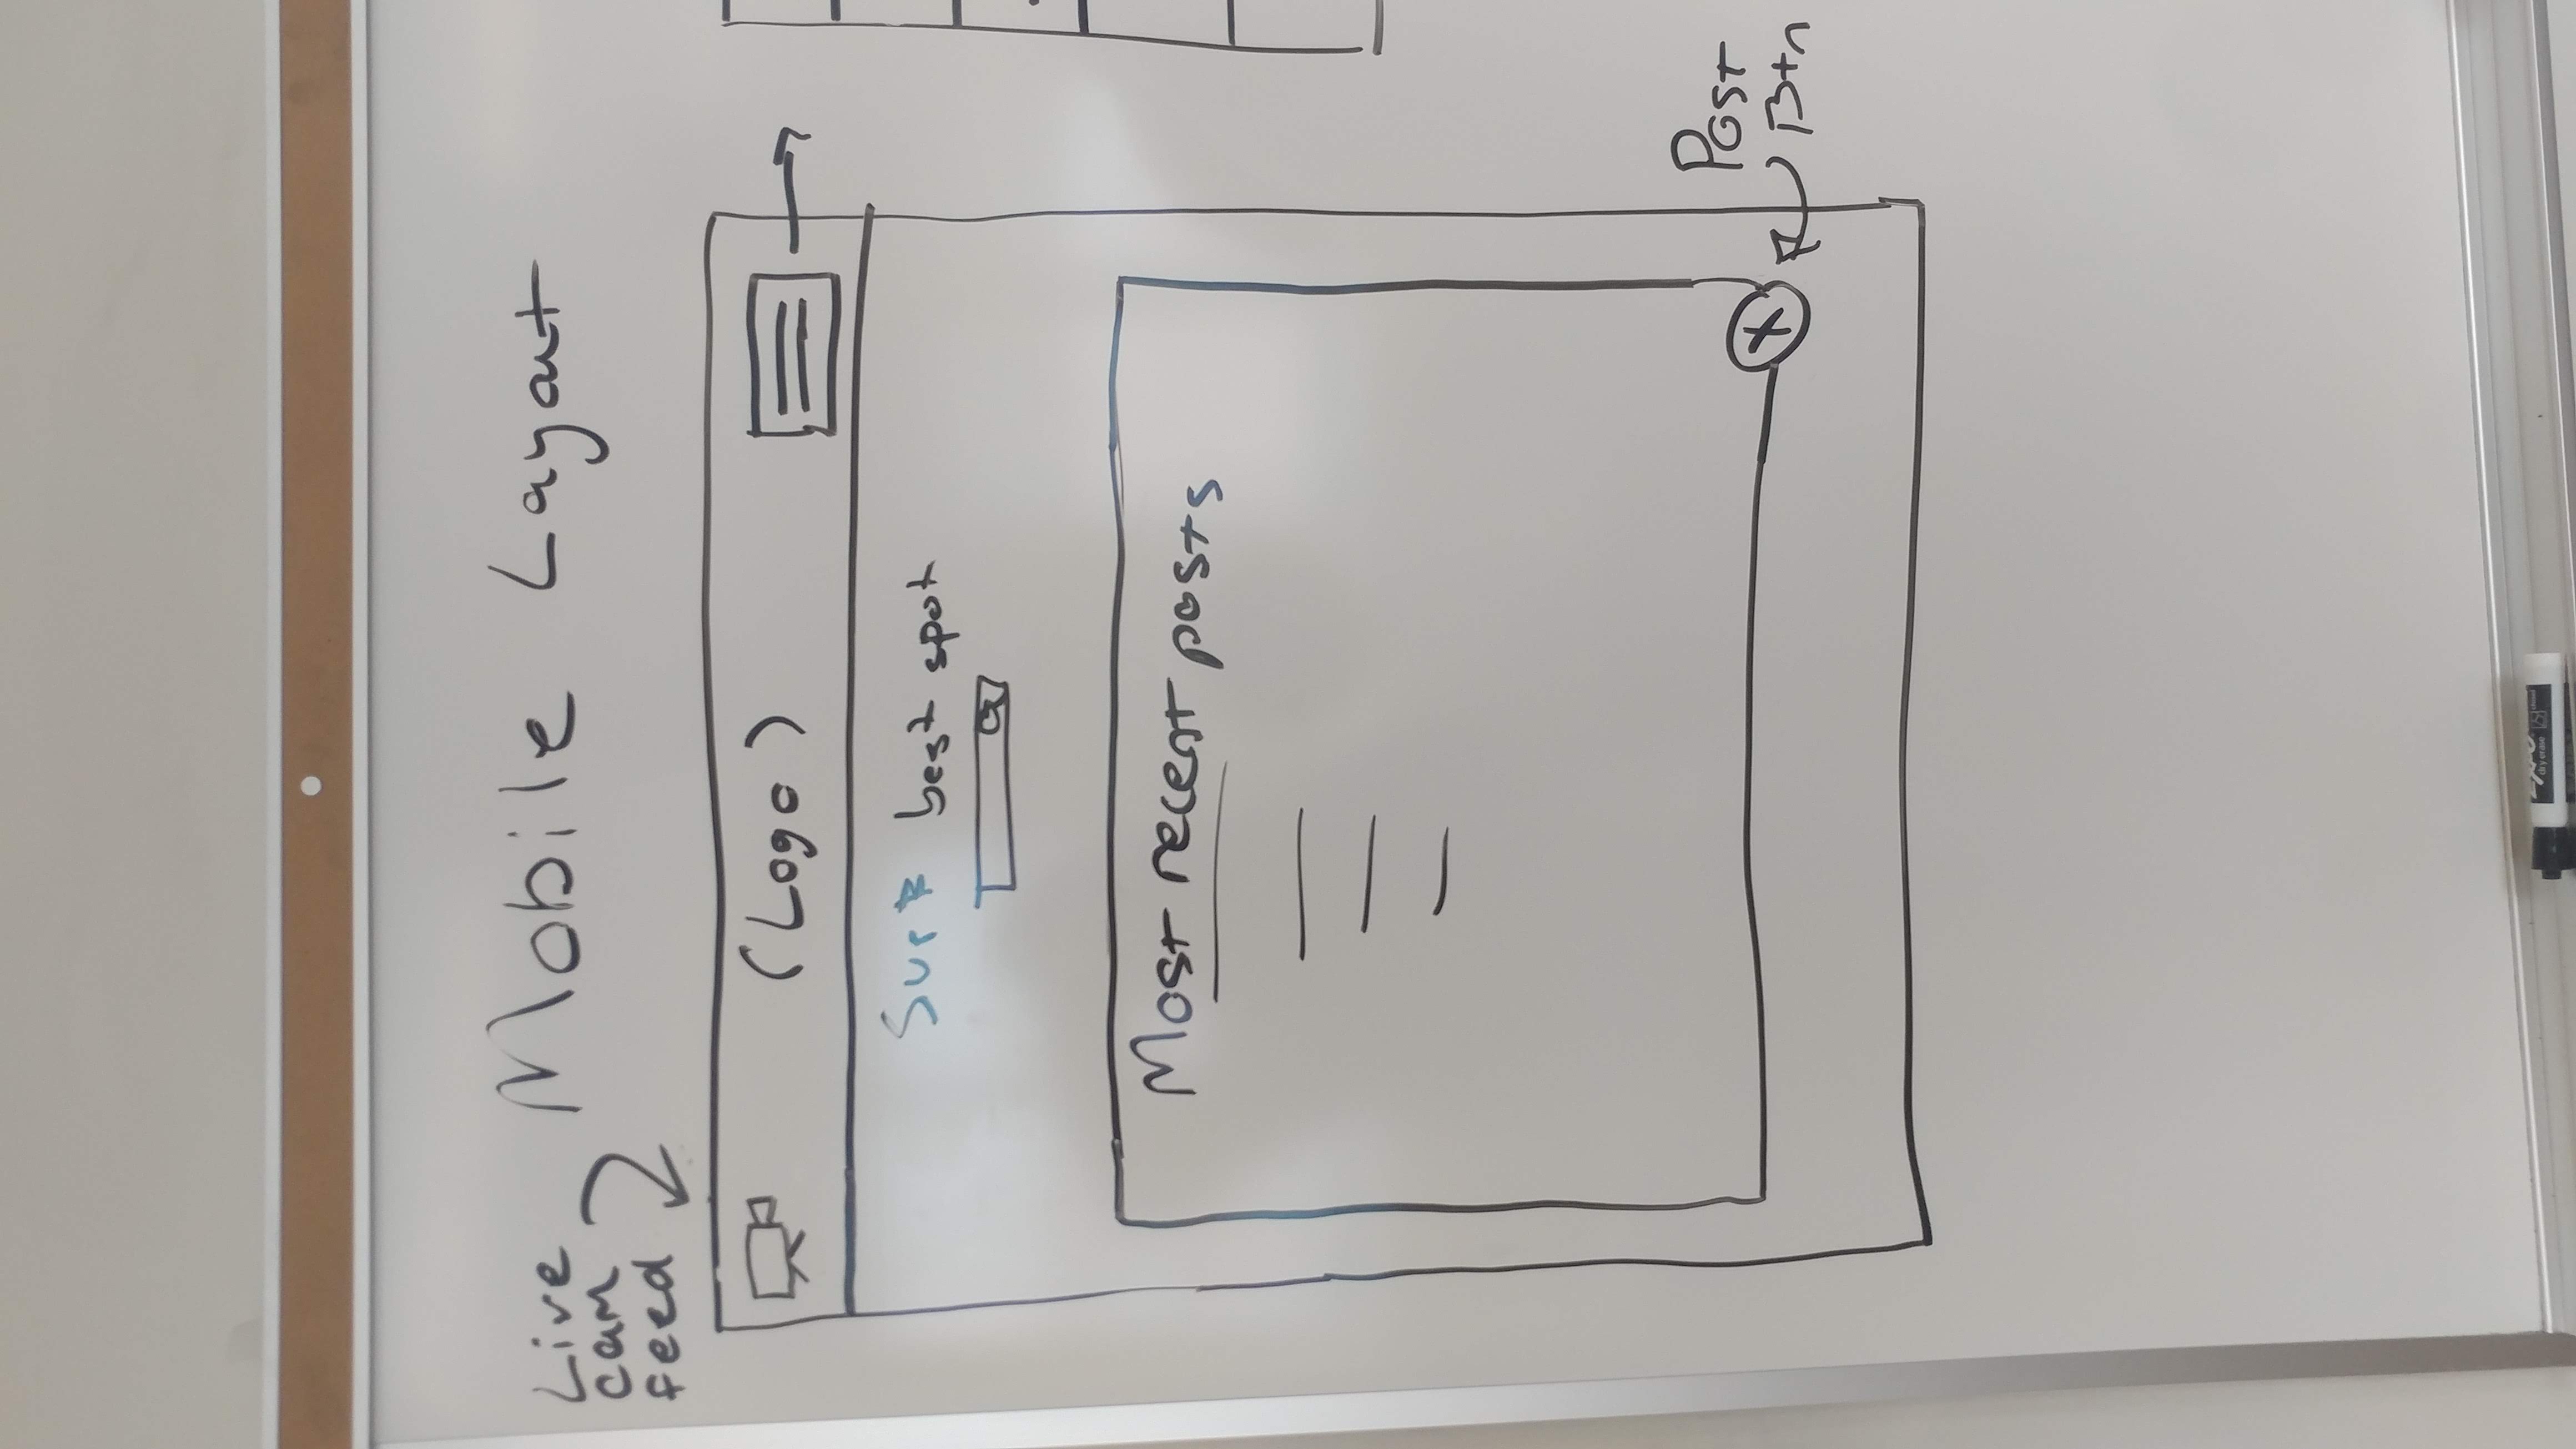 Mobile Layout
Live
cam
feed
(Logo)
best spot
Most recent posts
Post
Btn
dry erase